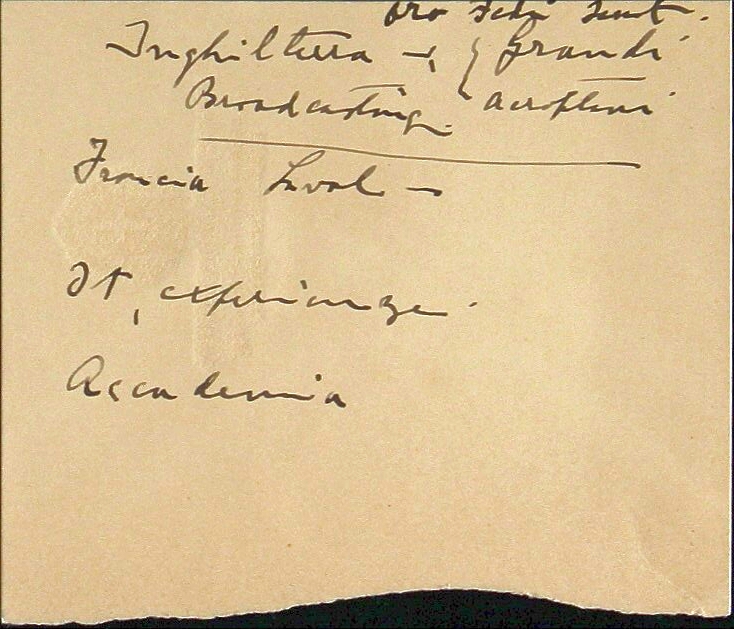 Inghilterra – { Grandi
Broadcasting aeroplani
Francia Laval –
esperienze
Accademia